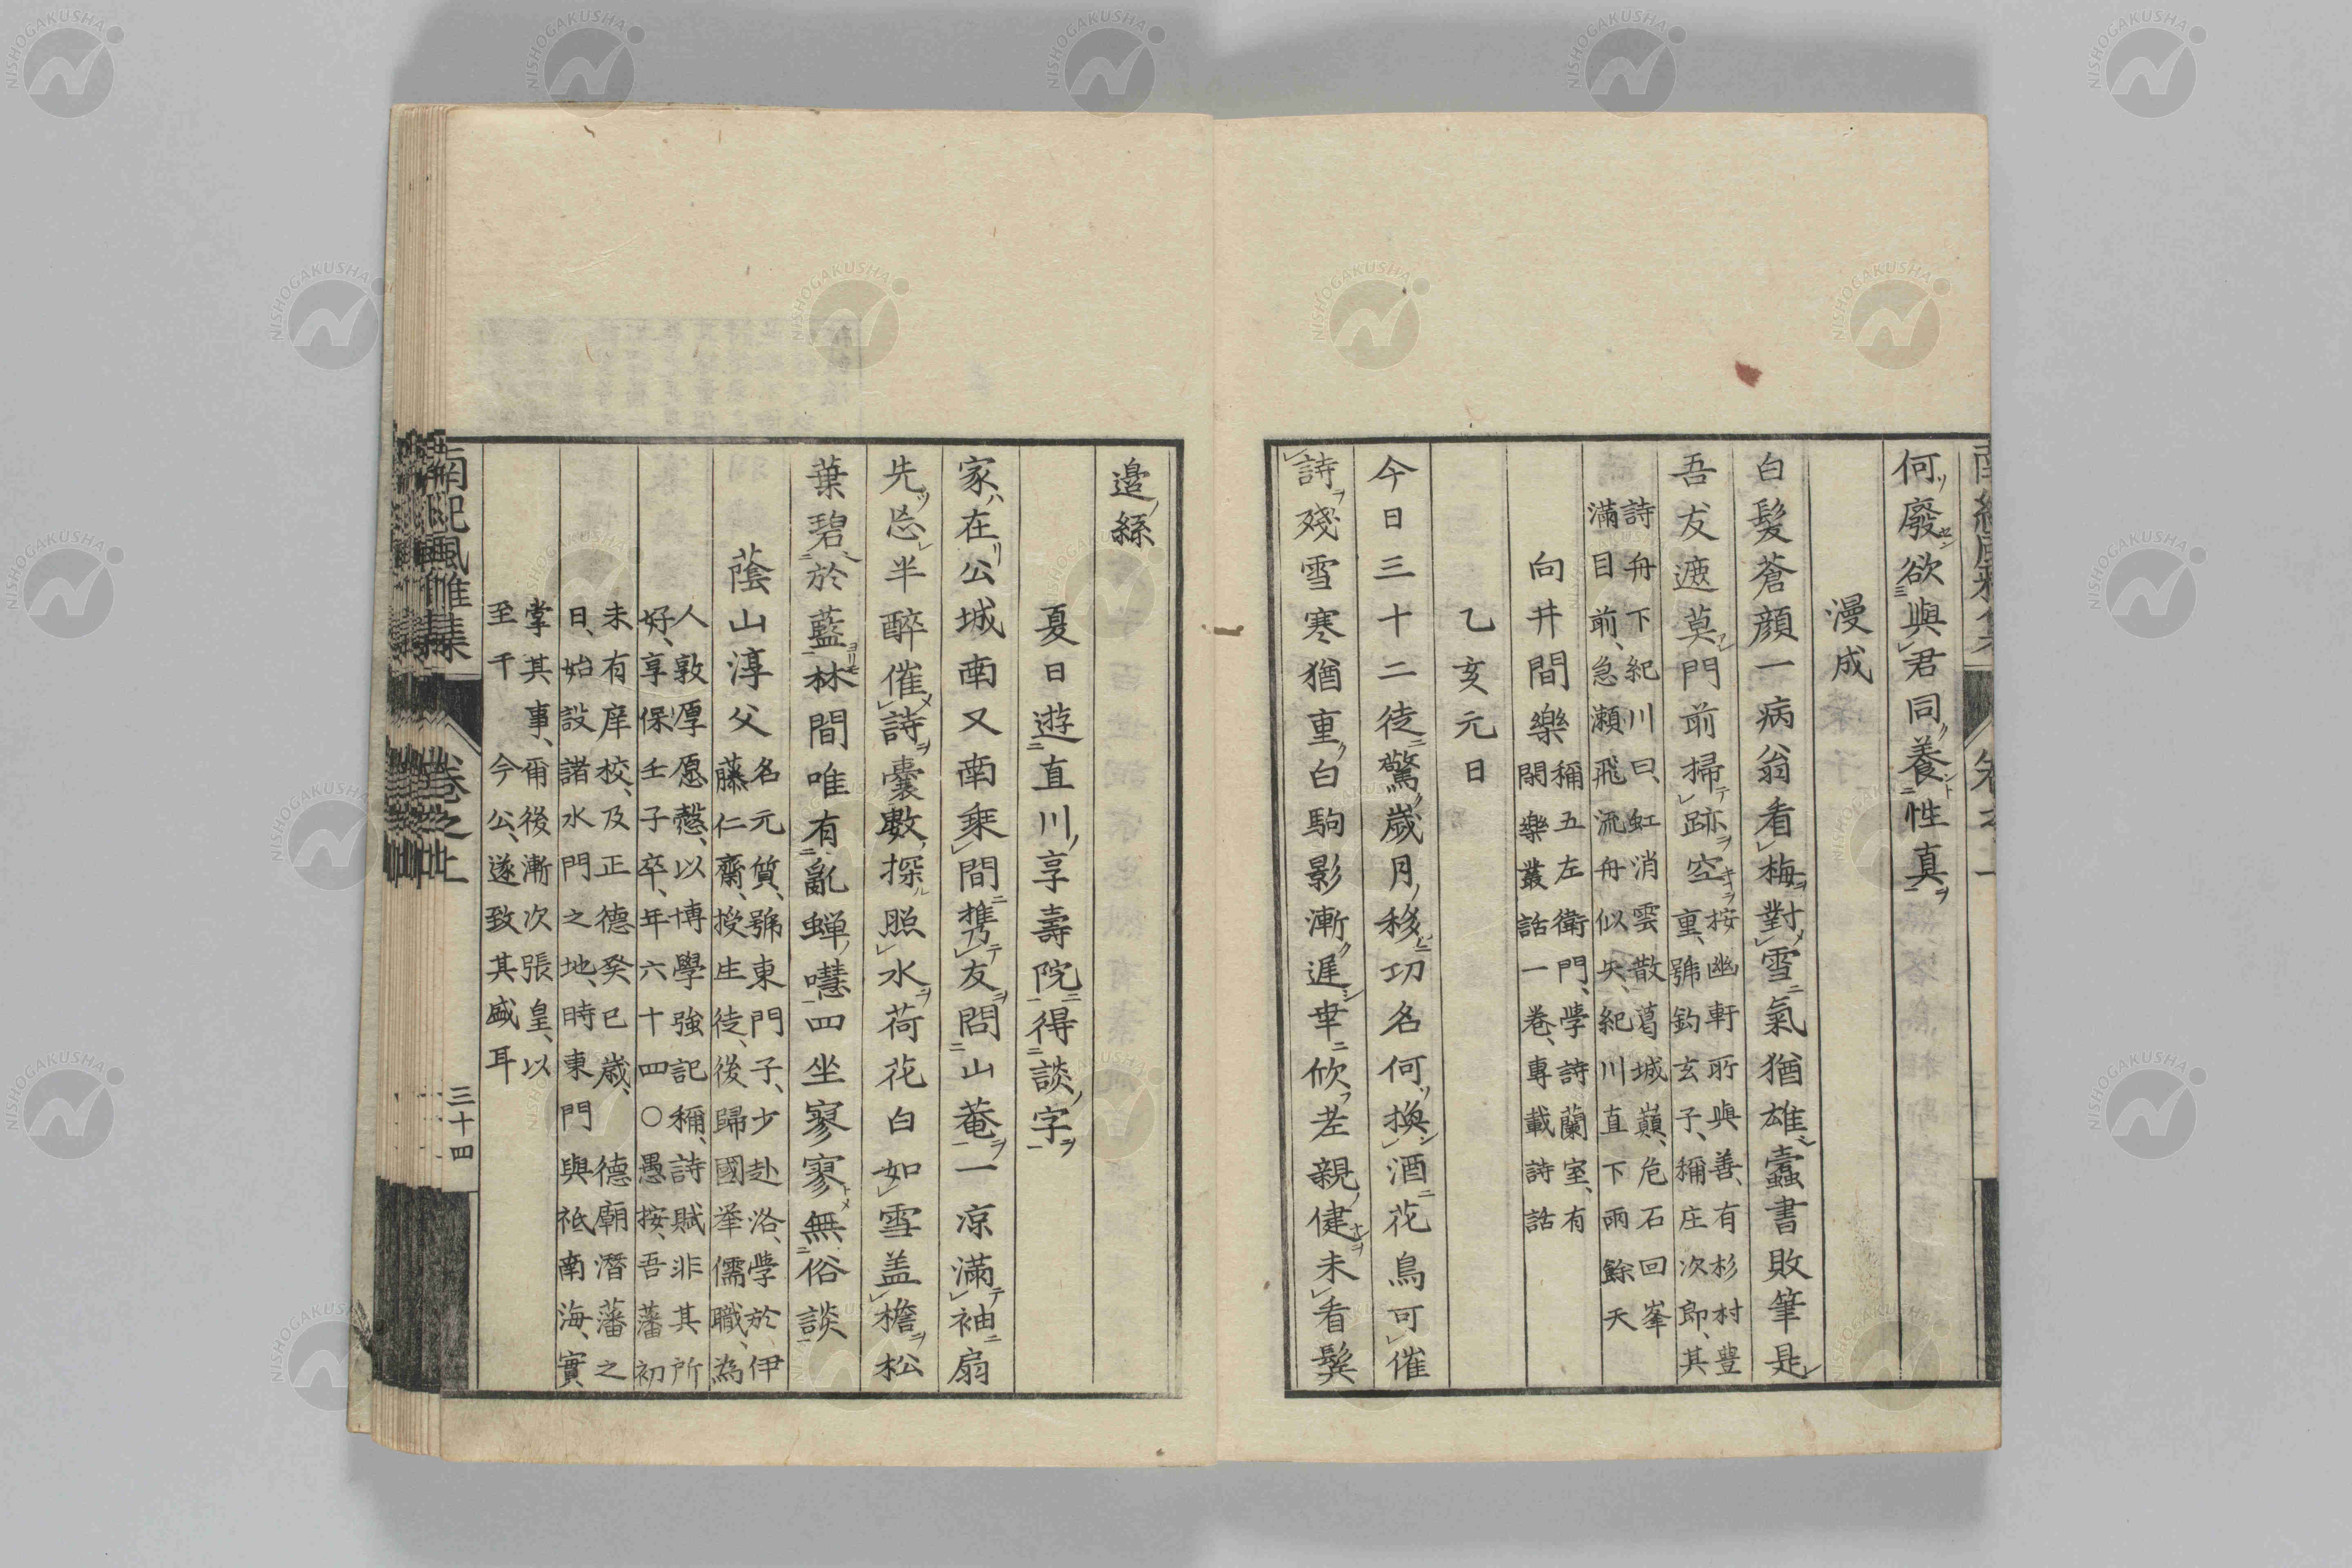 何廢欲與君同養性真
漫成
白髮蒼顏一病翁看梅對雪氣猶雄蠹書敗筆是
吾友遮莫門前掃跡空
按幽軒所與善有杉村豊
重、號鈞玄子、稱庄次郎、其
詩舟下紀川曰、虹消雲散葛城巓、危石回峯
滿目前、急瀬飛流舟似矢、紀川直下雨餘天
向井間樂
稱五左衛門、學詩蘭室、有
閑樂叢話一卷、專載詩話
乙亥元日
今日三十二徒驚歲月移功名何換酒花鳥可催
詩殘雪寒猶重白駒影漸遲幸欣老親健未看鬓
邉絲
夏日遊直川享壽院得談字
家在公城南又南乘間攜友問山菴一凉滿袖扇
先忘半醉催詩囊數探照水荷花白如雪盖檐松
葉碧於藍林間唯有亂蝉嘒四坐寥寥無俗談
蔭山淳父
名元質、號東門子、少赴洛、學於伊
藤仁齋、授生徒、後歸國举儒職、為
人敦厚愿慤、以博學強記稱、詩賦非其所
好、享保壬子卒、年六十四○愚按、吾藩初
未有庠校、及正德癸巳歲、德廟潛藩之
日、始設諸水門之地、時東門與祇南海、實
掌其事、爾後漸次張皇、以
至千今公、遂致其盛耳
南紀風雅集
卷之上
三十四
NISHOGAKUSHA